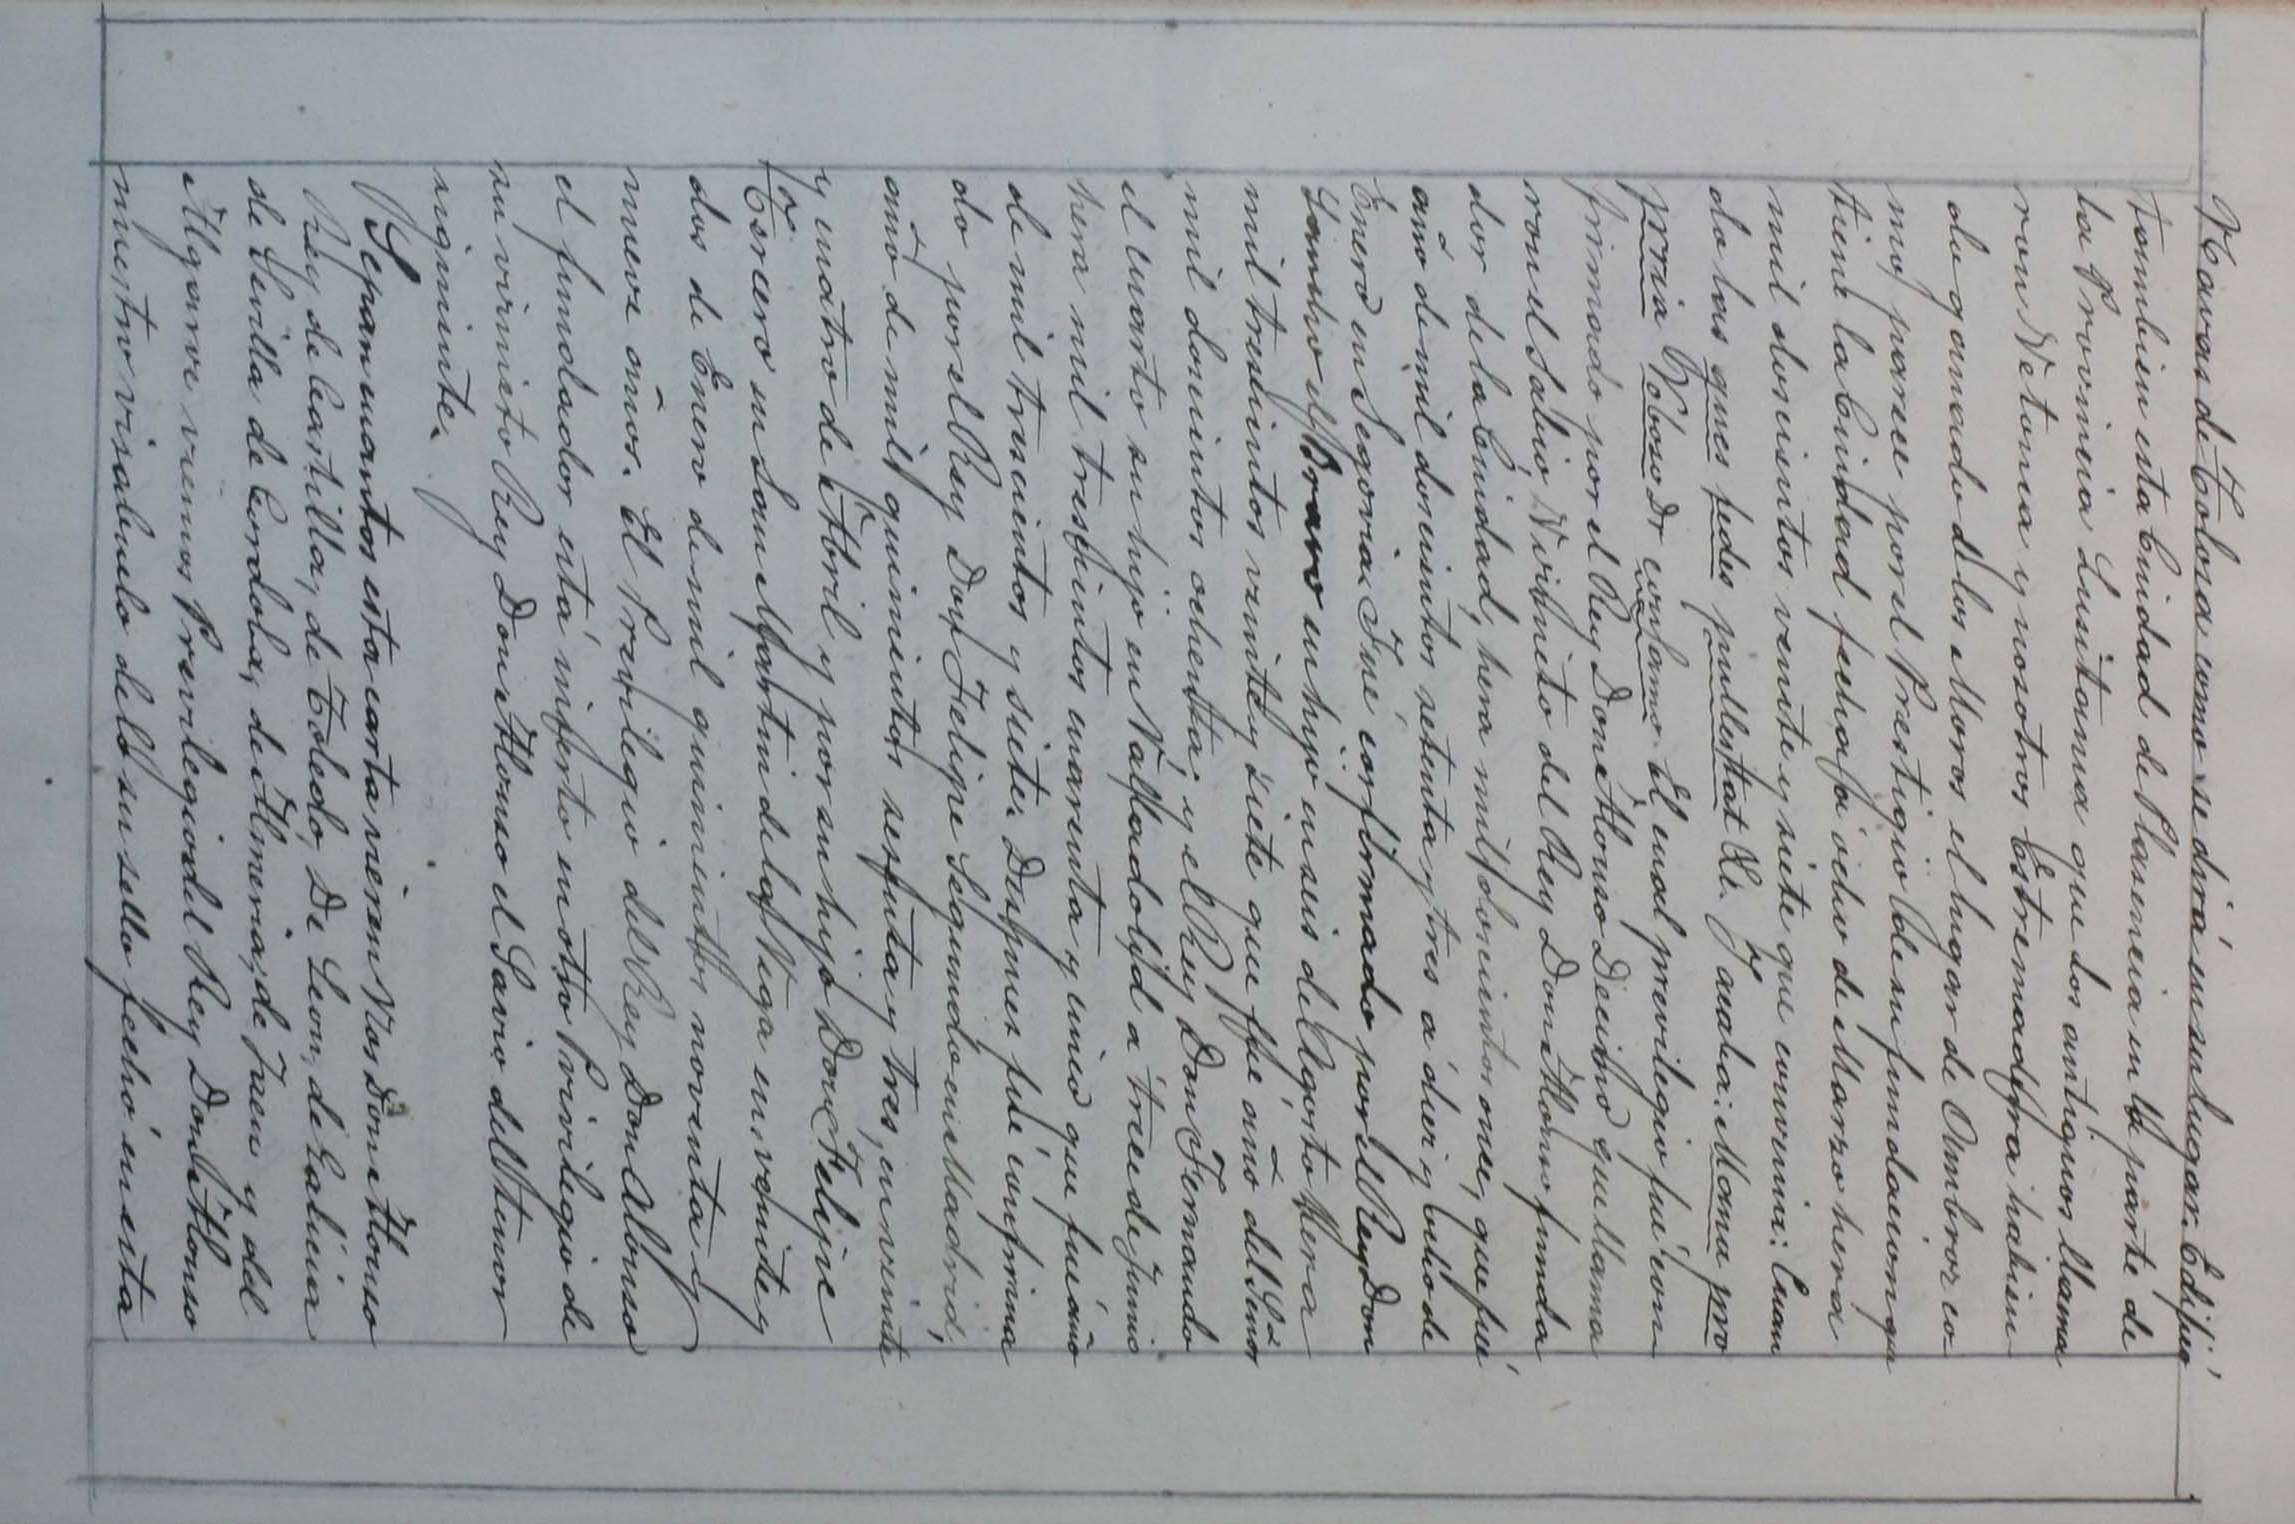 Navas de Tolosa como se dirá en su lugar. Edificó
tambien esta Ciudad de Plasencia en la parte de
la Provincia Lusitania que los antiguos llama
ron Vetonia y nosotros Estremadura habien
do ganado de los Moros el lugar de Ambroz co
mo parece por el Prestigio de su fundacion que
tiene la Ciudad fecha á ocho de Marzo hera
mil doscientos veinte y siete que comienza: Cuan
do las
pria
firmado por el Rey Don Alonso Decimo que llama
ron el Sabio, Visnieto del Rey Don Alonso funda
dor de la Ciudad, hera mil doscientos once, que fué
año de mil doscientos setenta y tres á diez y ocho de
Enero en Segovia Fué confirmado por el Rey Don
Sancho el Bravo su hijo en seis de Agosto Hera
mil trescientos veinte y siete que fué año del Señor
mil doscientos ochenta, y el Rey Don Fernando
el cuarto su hijo en Valladolid a trece de Junio
hera mil trescientos cuarenta y cinco que fué año
de mil trescientos y siete. Despues fué confirma
do por el Rey Don Felipe Segundo en Madrid,
año de mil quinientos sesenta y tres, en veinte
y cuatro de Abril y por su hijo Don Felipe
Tercero en San Martin de la Vega en veinte y
dos de Enero de mil quinientos noventa y
nueve años. El Previlegio del Rey Don Alonso
el fundador está inserto en otro Privilegio de
su visnieto Rey Don Alonso el Savio del tenor
siguiente.
Sepan cuantos esta carta vieren Nos Don Alonso
Rey de Castilla, de Toledo, De Leon, de Galicia
de Sevilla de Cordoba, de Almeria, de Jaen y del
Algarve viemos Previlegio del Rey Don Alonso
nuestro visabuelo de lo su sello fecho en esta